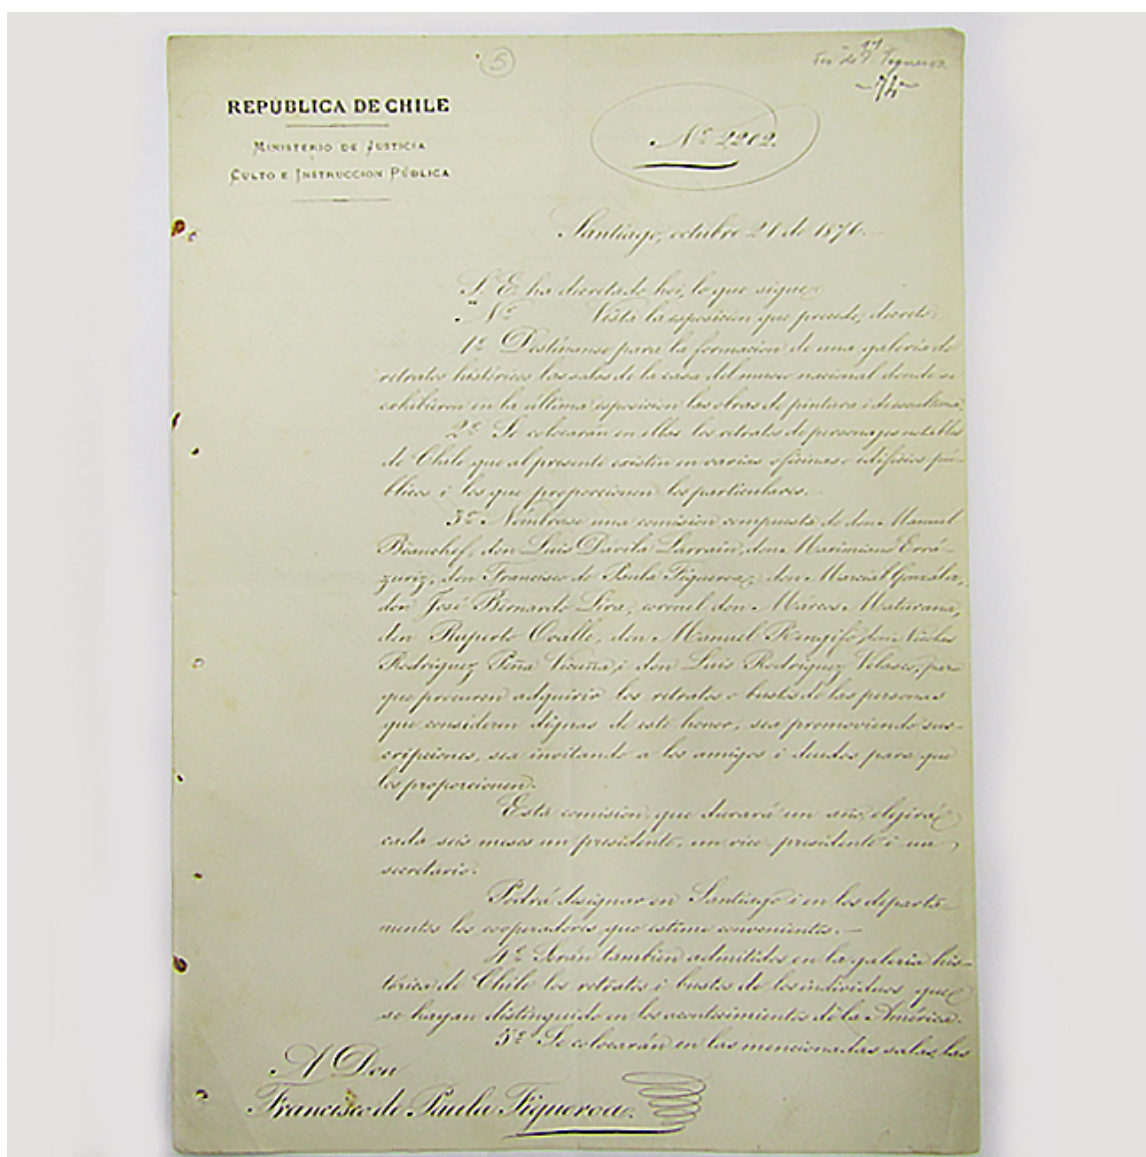 5
Figueroa
REPÚBLICA DE CHILE
MINISTERIO DE JUSTICIA
CULTO E INSTRUCCION PÚBLICA
Nº 2202.
Santiago, octubre 21 de 1876.
S. E. ha decretado hoi, lo que sigue:
"Nº Vista la esposicion que precede, decreto:
1º Destínanse para la formacion de una galería de
retratos históricos las salas de la casa del museo nacional donde se
exhibieron en la última esposicion las obras de pintura i de escultura.
2º Se colocarán en ellas los retratos de personajes notables
de Chile que al presente existen en varias oficinas o edificios pú-
blicos i los que proporcionen los particulares.
3º Nómbrase una comision compuesta de don Manuel
don Luis Dávila Larrain, don Maximiano Errá-
zuriz, don Francisco de Paula Figueroa, don Marcial González,
don José Bernardo Lira, coronel don Márcos Maturana,
don Ruperto Ovalle, don Manuel Renjifo, don Nicolas
Rodríguez Peña Vicuña, i don Luis Rodríguez Velasco, para
que procuren adquirir los retratos o bustos de las personas
que consideren dignas de este honor, sea promoviendo sus-
cripciones, sea invitando a los amigos i deudos para que
los proporcionen.
Esta comision, que durará un año, elejirá
cada seis meses un presidente, un vice-presidente i un
secretario.
Podrá designar en Santiago i en los departa-
mentos los cooperadores que estime convenientes.—
4º Serán tambien admitidos en la galería his-
tórica de Chile los retratos i bustos de los individuos que
se hayan distinguido en los acontecimientos de la América.
5º Se colocarán en las mencionadas salas, las
A Don
Francisco de Paula Figueroa.